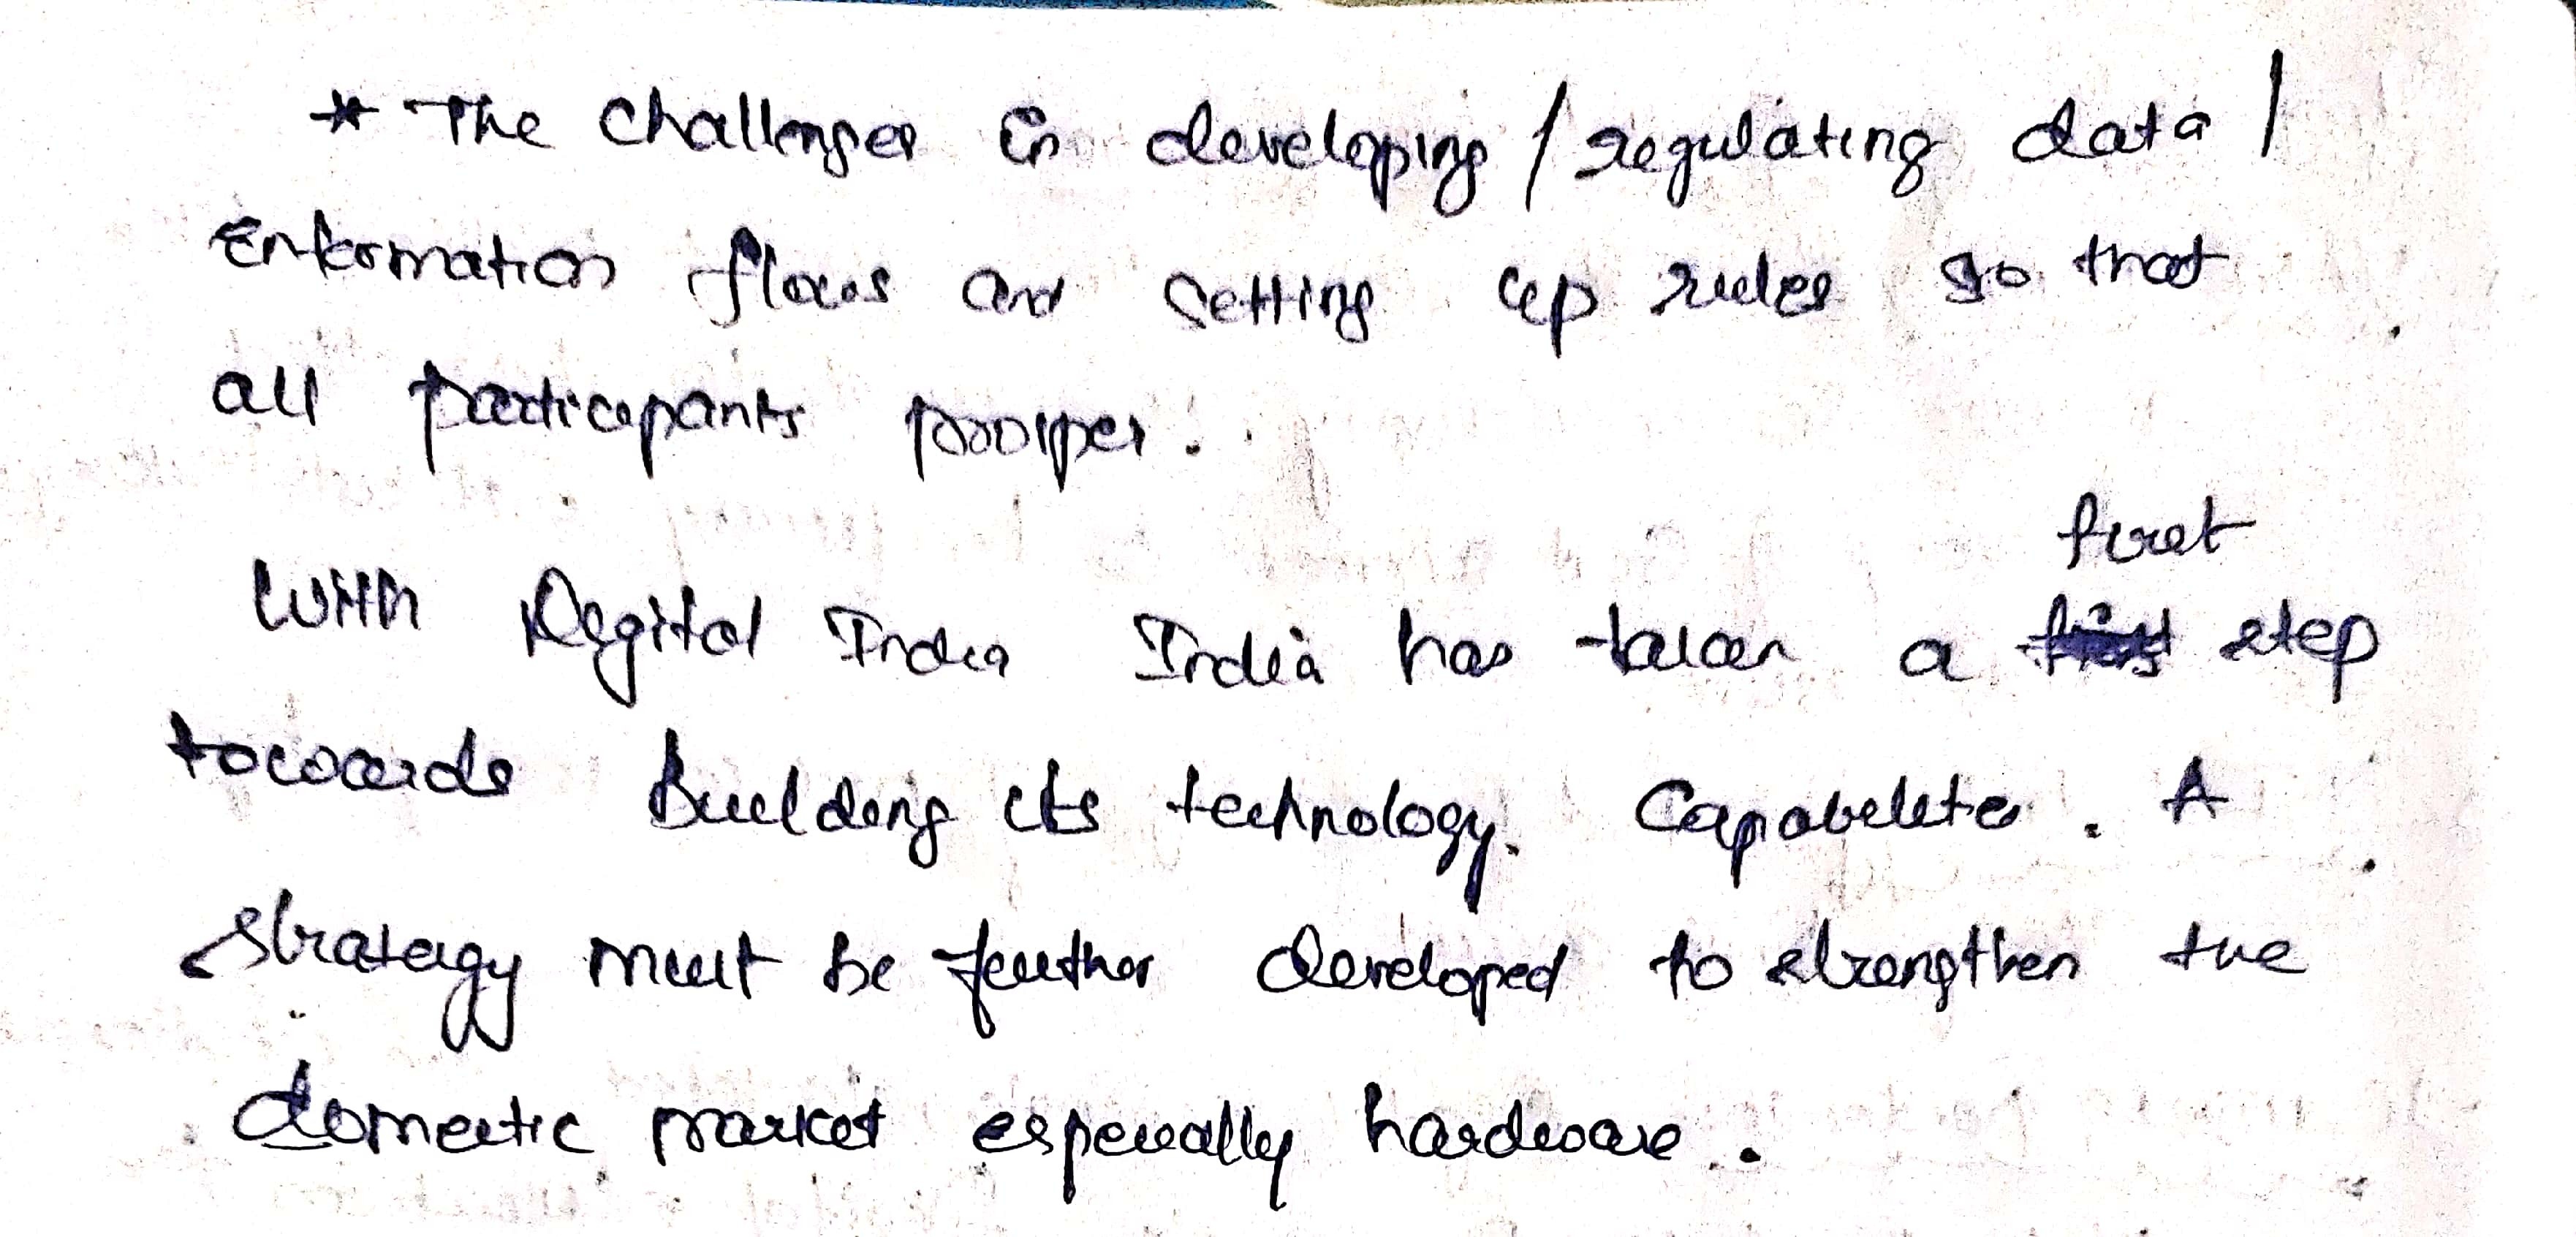 * The challenges in developing / regulating data /
information flows and setting up rules so that
all participants prosper.
first
With Digital India India has taken a step
towards building its technology. Capabilite. A
stratergy must be further developed to strengthen the
domestic market especially hardware.